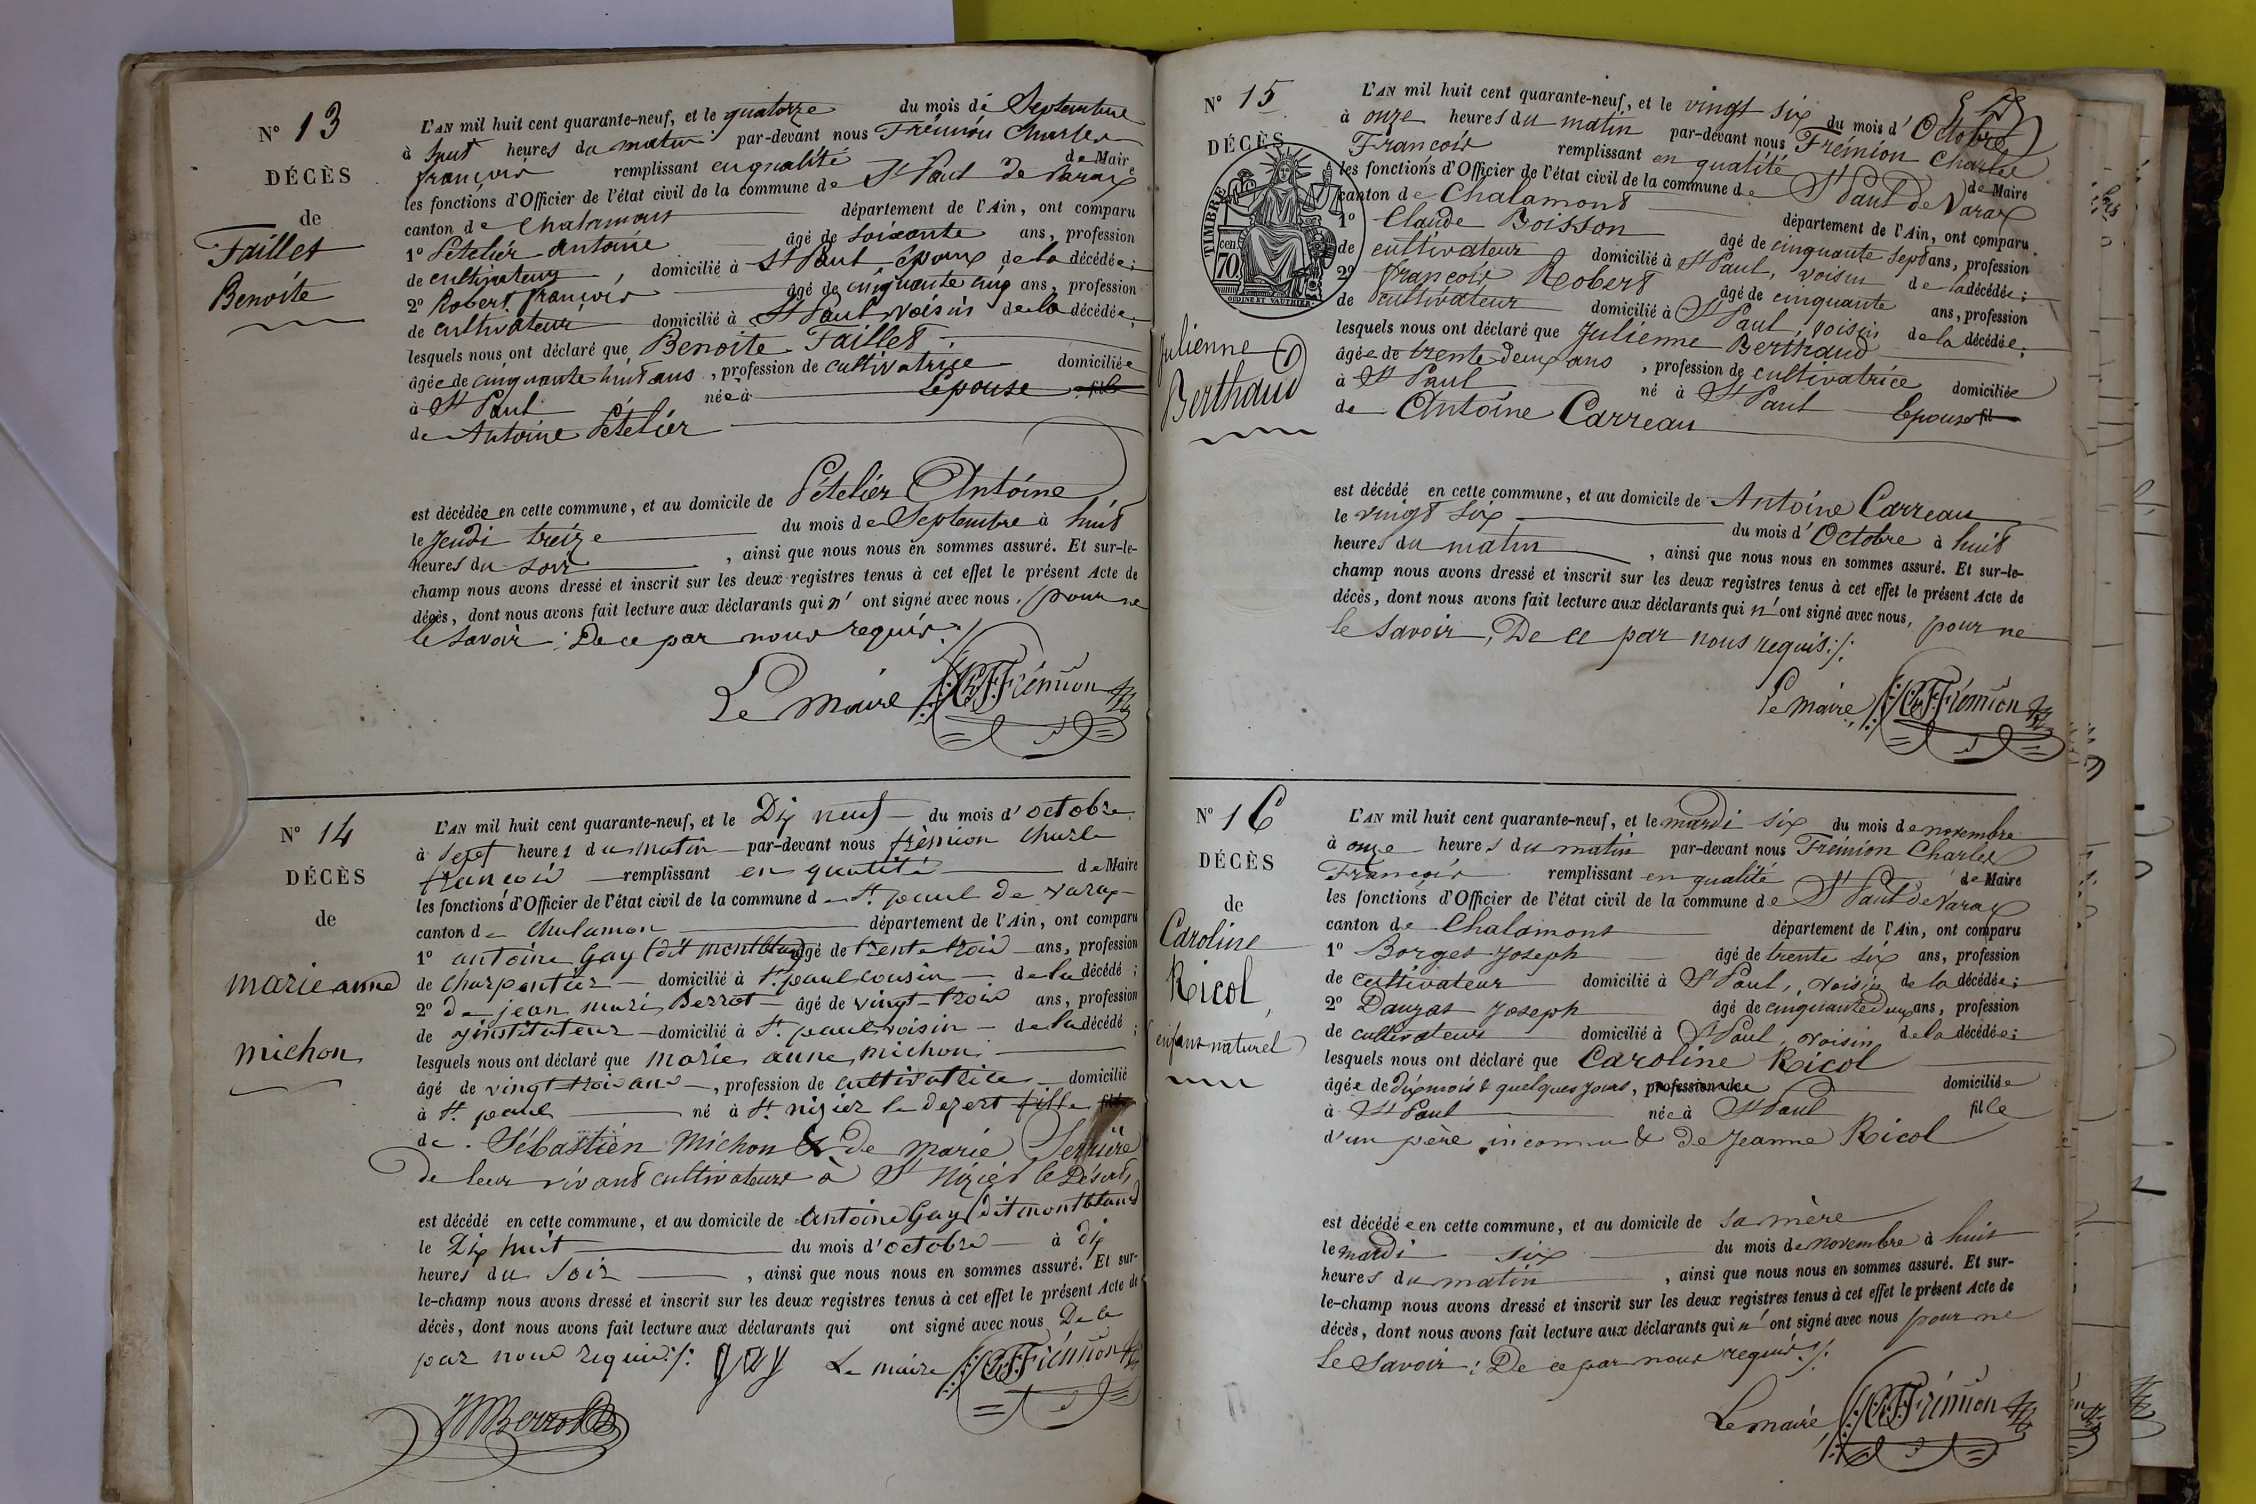 N° 13
DÉCÈS
de
Faillet
Benoite
L'AN mil huit cent quarante-neuf, et le quatorze du mois de Septembre
à sept heures du matin par-devant nous Frémion Charles
françois remplissant en qualité de Maire
les fonctions d'Officier de l'état civil de la commune de St Paul de Varax
canton de Chalamont département de l'Ain, ont comparu
1° Lételier Antoine âgé de soixante ans, profession
de cultivateur, domicilié à St Paul époux de la décédée;
2° Robert françois âgé de cinquante cinq ans, profession
de cultivateur domicilié à St Paul voisin de la décédée;
lesquels nous ont déclaré que Benoite Faillet
âgée de cinquante huit ans, profession de cultivatrice domiciliée
à St Paul née à L'épouse fil
de Antoine Lételier
est décédée en cette commune, et au domicile de Lételier Antoine
le Jeudi treize du mois de Septembre à huit
heures du soir, ainsi que nous nous en sommes assuré. Et sur-le-
champ nous avons dressé et inscrit sur les deux registres tenus à cet effet le présent Acte de
décès, dont nous avons fait lecture aux déclarants qui n'ont signé avec nous, pour ne
le savoir; De ce par nous requis ./.
Le maire C. F. Frémion
N° 14
DÉCÈS
de
marie anne
michon
L'AN mil huit cent quarante-neuf, et le Dix neuf du mois d'octobre
à sept heures du matin par-devant nous frémion Charle
francois remplissant en qualité de Maire
les fonctions d'Officier de l'état civil de la commune d St. paul de varax
canton de Chalamon département de l'Ain, ont comparu
1° antoine Gay (dit montbland) âgé de trente trois ans, profession
de Charpentier domicilié à St. paul cousin de la décédé;
2° de jean marie Berrot âgé de vingt-trois ans, profession
de instituteur domicilié à St. paul voisin de la décédé;
lesquels nous ont déclaré que marie anne michon
âgé de vingt trois ans, profession de cultivatrice domicilié
à St. paul né à St. nizier le dezert fille fil
de Sébastien Michon & de Marie Serrière
De leur vivant cultivateurs à St Nizier le Désert,
est décédé en cette commune, et au domicile de Antoine Gay (dit montbland
le Dix huit du mois d'octobre à dix
heures du soir, ainsi que nous nous en sommes assuré. Et sur-
le-champ nous avons dressé et inscrit sur les deux registres tenus à cet effet le présent Acte de
décès, dont nous avons fait lecture aux déclarants qui ont signé avec nous De ce
par nous requis ./. gay Le maire C. F. Frémion
JM Berrot
N° 15
DÉCÈS
TIMBRE
cen
70
Julienne
Berthaud
L'AN mil huit cent quarante-neuf, et le vingt six du mois d'Octobre
à onze heures du matin par-devant nous Frémion Charles
François remplissant en qualité de Maire
les fonctions d'Officier de l'état civil de la commune de St Paul de Varax
canton de Chalamont département de l'Ain, ont comparu
1° Claude Boisson âgé de cinquante sept ans, profession
de cultivateur domicilié à St Paul, voisin de la décédée;
2° françois Robert âgé de cinquante ans, profession
de cultivateur domicilié à St Paul, voisin de la décédée;
lesquels nous ont déclaré que Julienne Berthaud
âgée de trente deux ans, profession de cultivatrice domiciliée
à St Paul né à St Paul L'épouse fil
de Antoine Carreau
est décédé en cette commune, et au domicile de Antoine Carreau
le vingt six du mois d'Octobre à huit
heures du matin, ainsi que nous nous en sommes assuré. Et sur-le-
champ nous avons dressé et inscrit sur les deux registres tenus à cet effet le présent Acte de
décès, dont nous avons fait lecture aux déclarants qui n'ont signé avec nous, pour ne
le savoir, De ce par nous requis ./.
Le maire, C. F. Frémion
N° 16
DÉCÈS
de
Caroline
Ricol,
enfant naturel
L'AN mil huit cent quarante-neuf, et le mardi six du mois de novembre
à onze heures du matin par-devant nous Frémion Charles
François remplissant en qualité de Maire
les fonctions d'Officier de l'état civil de la commune de St Paul de Varax
canton de Chalamont département de l'Ain, ont comparu
1° Borget Joseph âgé de trente six ans, profession
de cultivateur domicilié à St Paul, voisin de la décédée;
2° Dauzat Joseph âgé de cinquante deux ans, profession
de cultivateur domicilié à St Paul, voisin de la décédée;
lesquels nous ont déclaré que Caroline Ricol
âgée de dix mois & quelques jours, profession de domiciliée
à St Paul née à St Paul fille
d'un père inconnu & de Jeanne Ricol
est décédée en cette commune, et au domicile de sa mère
le mardi six du mois de novembre à huit
heures du matin, ainsi que nous nous en sommes assuré. Et sur-
le-champ nous avons dressé et inscrit sur les deux registres tenus à cet effet le présent Acte de
décès, dont nous avons fait lecture aux déclarants qui n'ont signé avec nous pour ne
le savoir; De ce par nous requis ./.
Le maire C. F. Frémion